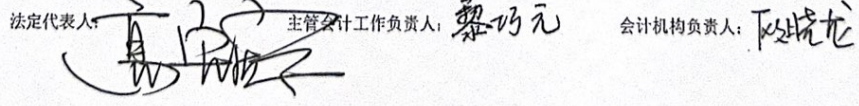 法定代表人： 主管会计工作负责人：黎巧元 会计机构负责人：晓龙